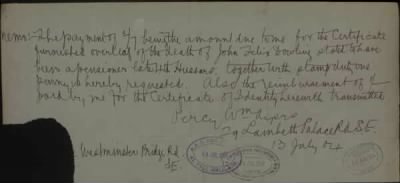 Memo:- The payment of 2/7 being the amount due to me for the Certificate
furnished overleaf of the death of John Felix Dowling stated to have
been a pensioner late 14th Hussars, together with stamp duty one
penny is hereby requested. Also the reimbursement of
paid by me for the Certificate of Identity herewith transmitted
Percy Wm
29 Lambeth Palace Rd S.E.
13 July 04
Westminster Bridge Rd
S.E.